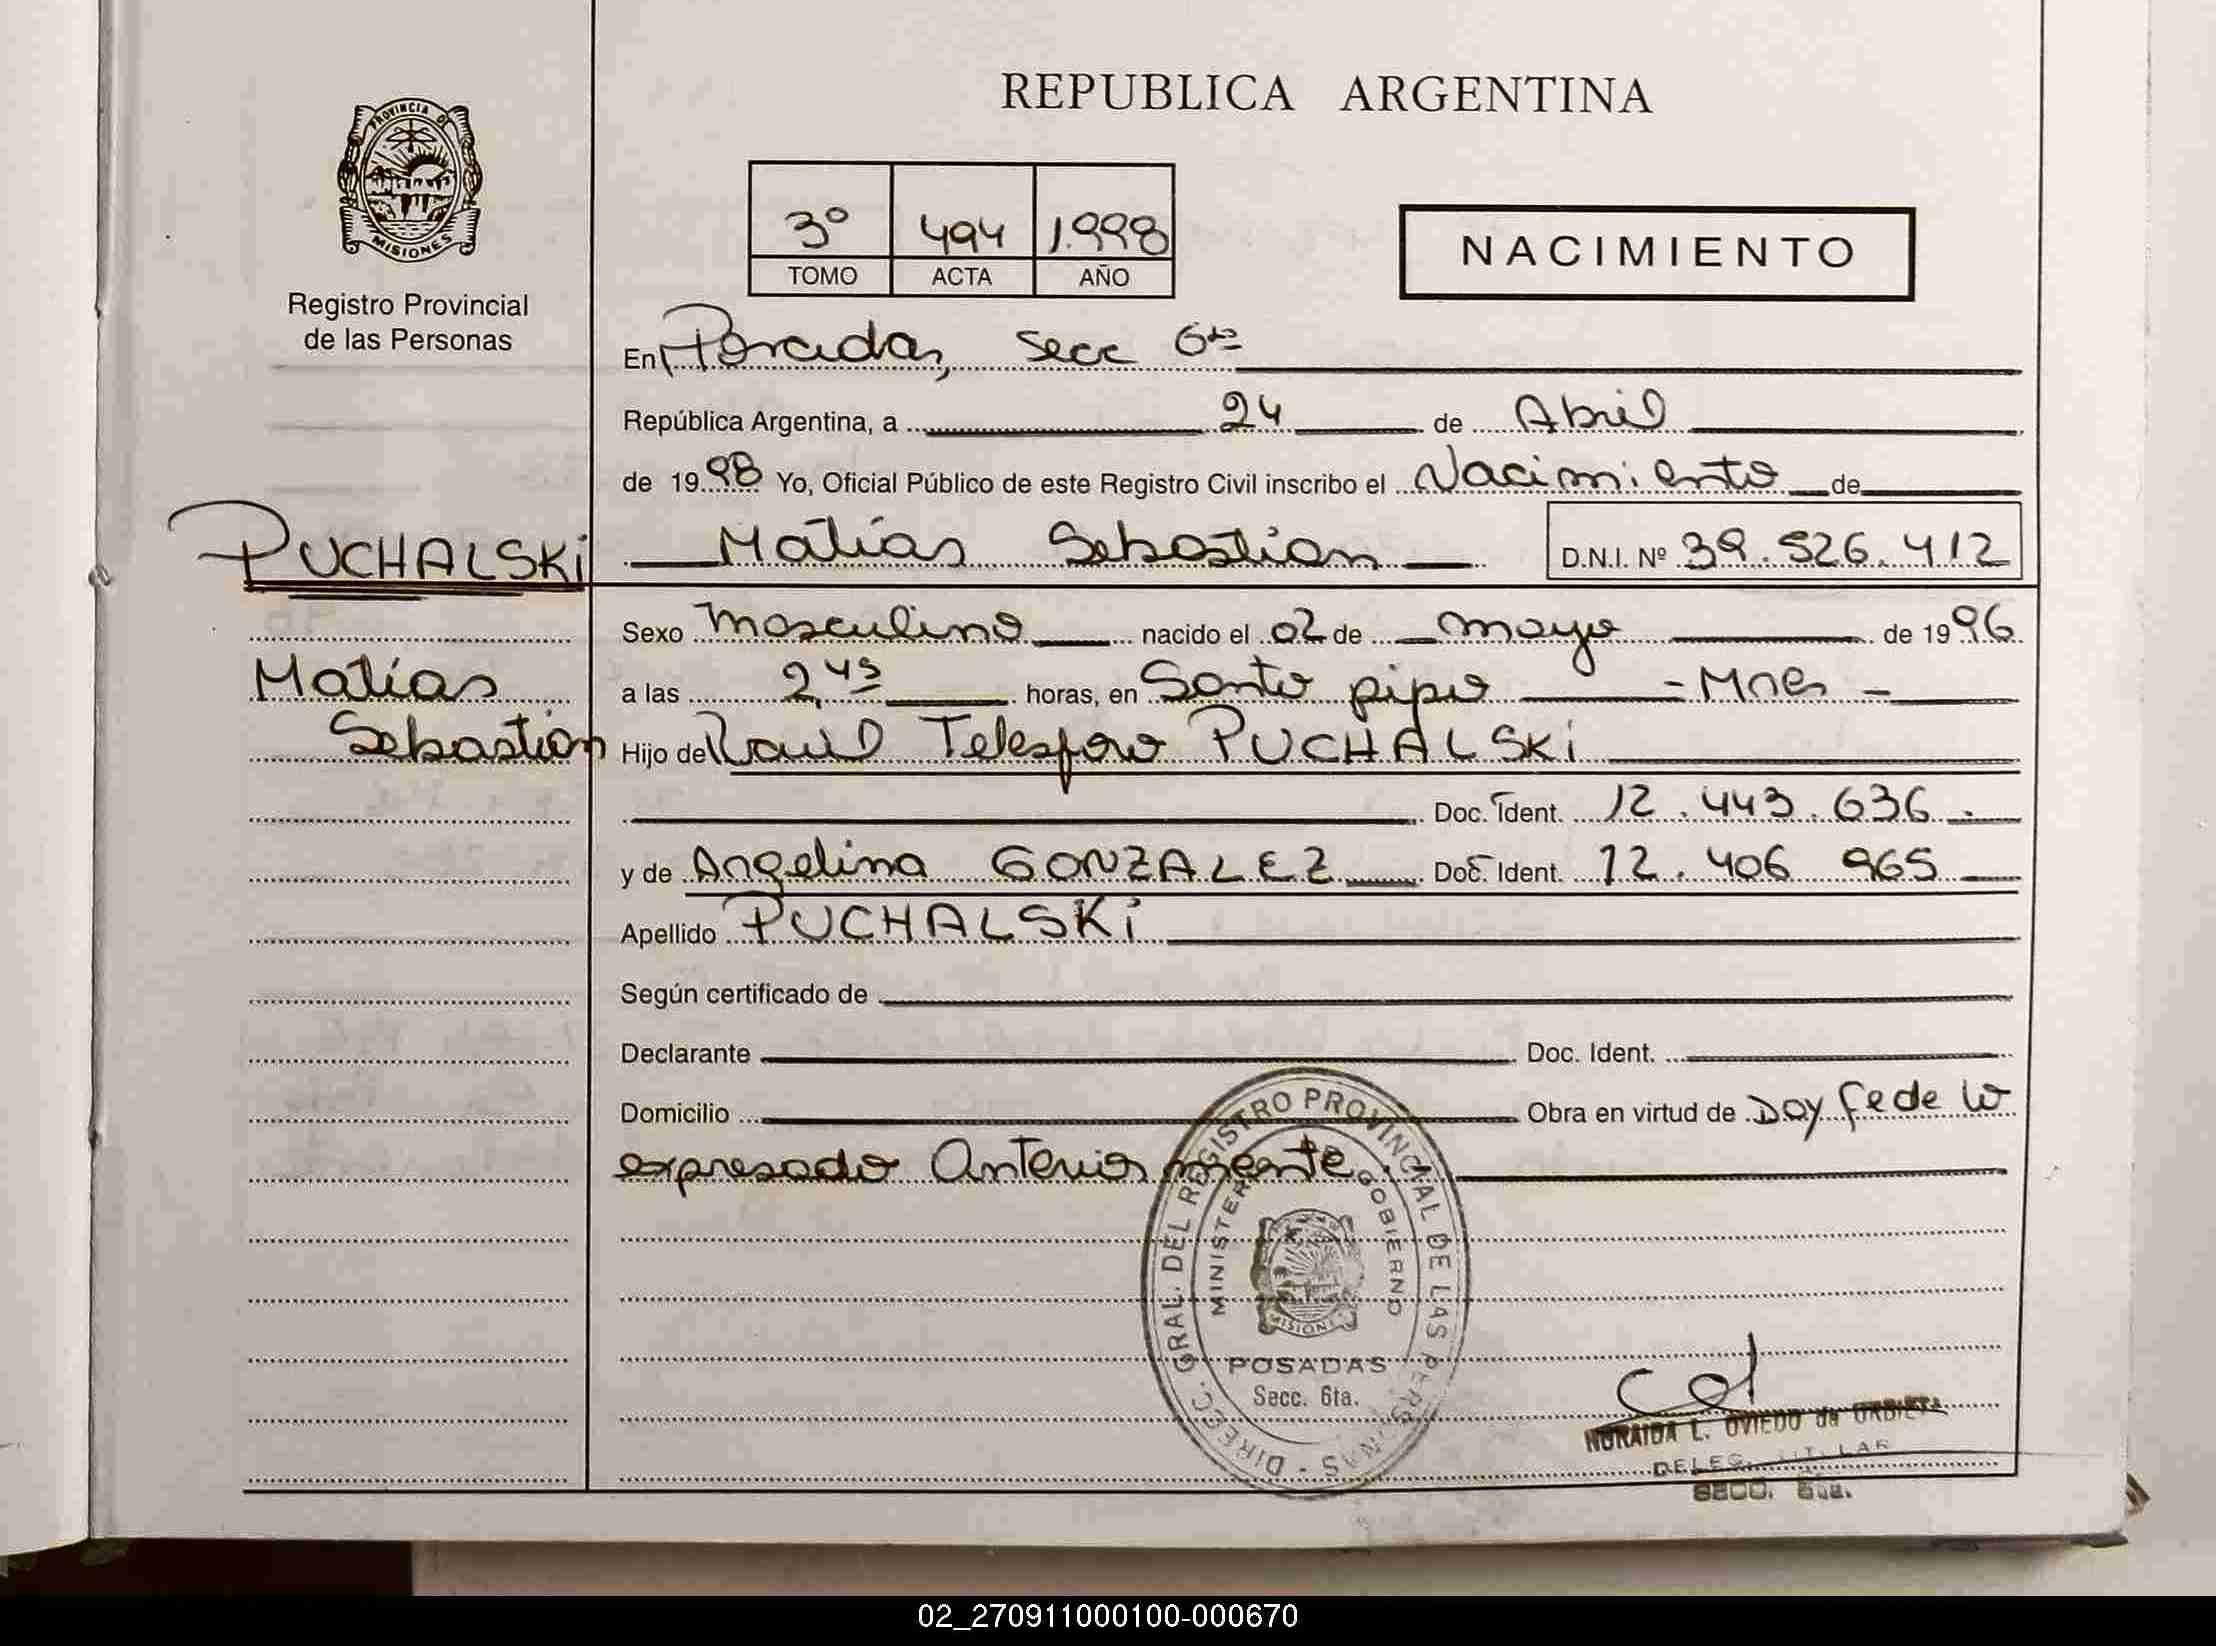 REPUBLICA ARGENTINA
PROVINCIA DE
MISIONES
Registro Provincial
de las Personas
3º 494 1.998
TOMO ACTA AÑO
NACIMIENTO
En Posadas, secc 6ta
República Argentina, a 24 de Abril
de 1998 Yo, Oficial Público de este Registro Civil inscribo el Nacimiento de
PUCHALSKi
Matías Sebastian D.N.I. Nº 39.526.412
Sexo Masculino nacido el 02 de mayo de 1996
Matías
a las 2,45 horas, en Santo pipo - Mnes -
Sebastian
Hijo de Raul Telesforo PUCHALSKi
Doc. Ident. 12.443.636.
y de Angelina GONZALEZ Doc. Ident. 12.406 965
Apellido PUCHALSKi
Según certificado de
Declarante Doc. Ident.
Domicilio Obra en virtud de Doy fe de lo
expresado Anteriormente.
DIRECC. GRAL. DEL REGISTRO PROVINCIAL DE LAS PERSONAS
MINISTERIO GOBIERNO
MISIONES
POSADAS
Secc. 6ta.
NORAIDA L. OVIEDO de URBIETA
DELEG. TITULAR
SECC. 6ta.
02_270911000100-000670